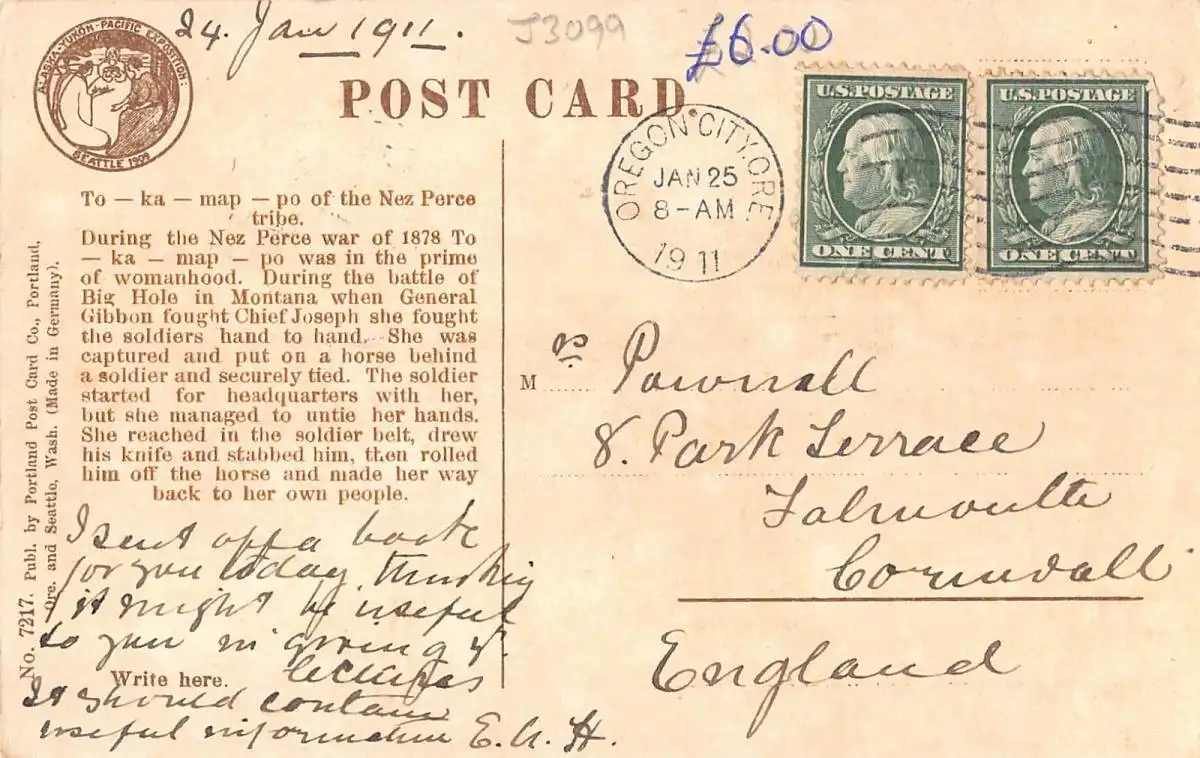 24. Jan 1911.
J3099
£6.00
ALASKA-YUKON-PACIFIC EXPOSITION
SEATTLE 1909
POST CARD
U.S. POSTAGE
ONE CENT
U.S. POSTAGE
ONE CENT
OREGON CITY, ORE.
JAN 25
8-AM
1911
To — ka — map — po of the Nez Perce
tribe.
During the Nez Perce war of 1878 To
— ka — map — po was in the prime
of womanhood. During the battle of
Big Hole in Montana when General
Gibbon fought Chief Joseph she fought
the soldiers hand to hand. She was
captured and put on a horse behind
a soldier and securely tied. The soldier
started for headquarters with her,
but she managed to untie her hands.
She reached in the soldier belt, drew
his knife and stabbed him, then rolled
him off the horse and made her way
back to her own people.
No. 7217. Publ. by Portland Post Card Co., Portland,
Ore. and Seattle, Wash. (Made in Germany).
I sent off a book
for you today, thinking
it might be useful
to you in giving yr
lectures
Write here.
It should contain
useful information E. A. H.
Mrs Pownall
8. Park Terrace
Falmouth
Cornwall
England